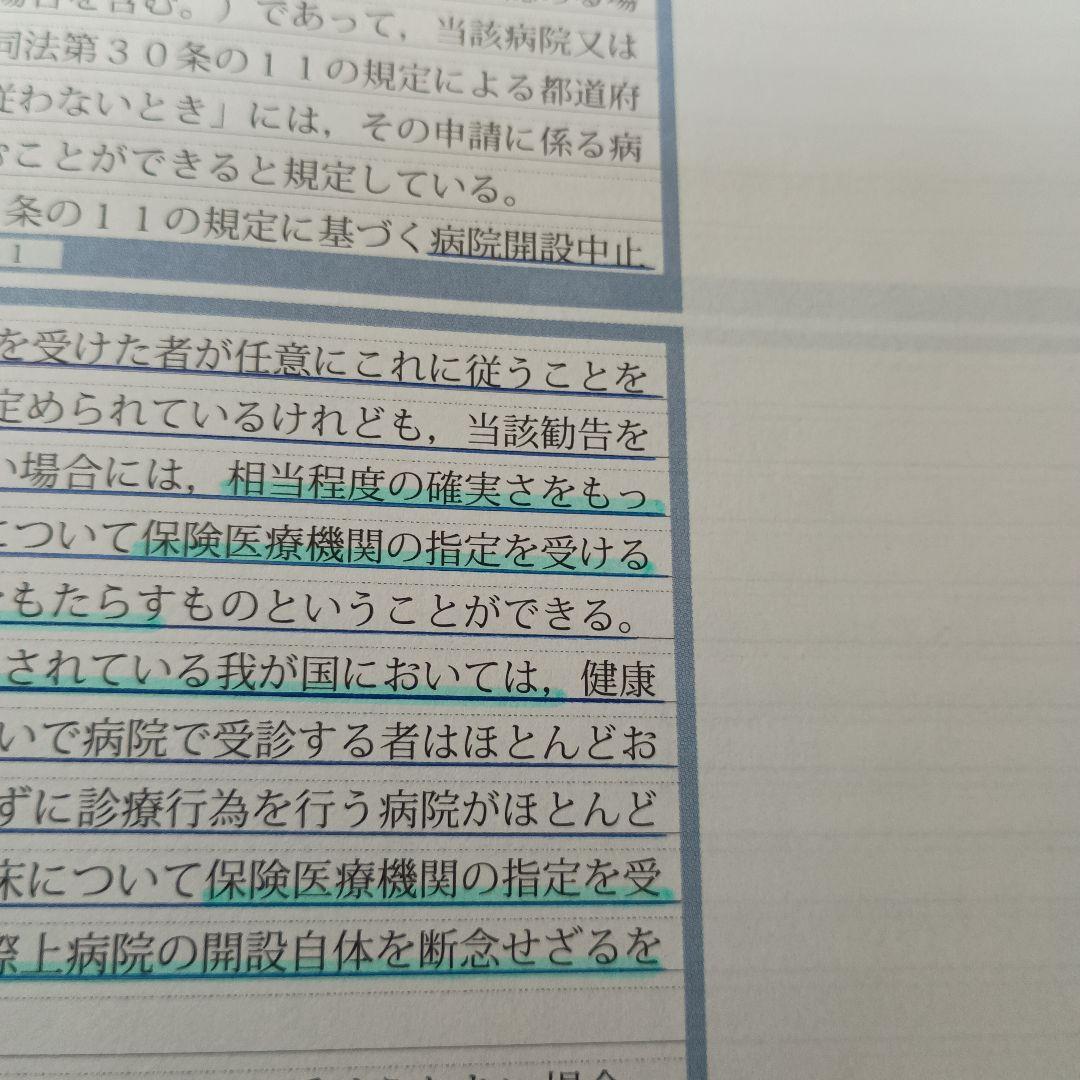 場合を含む。）であって，当該病院又は
同法第３０条の１１の規定による都道府
従わないとき」には，その申請に係る病
ことができると規定している。
条の１１の規定に基づく病院開設中止
1
を受けた者が任意にこれに従うことを
定められているけれども，当該勧告を
い場合には，相当程度の確実さをもっ
について保険医療機関の指定を受ける
をもたらすものということができる。
されている我が国においては，健康
いで病院で受診する者はほとんどお
ずに診療行為を行う病院がほとんど
床について保険医療機関の指定を受
際上病院の開設自体を断念せざるを